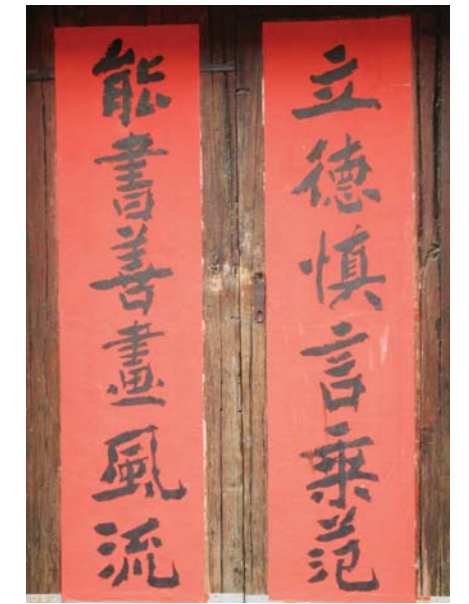 立德慎言乘范
能書善畫風流